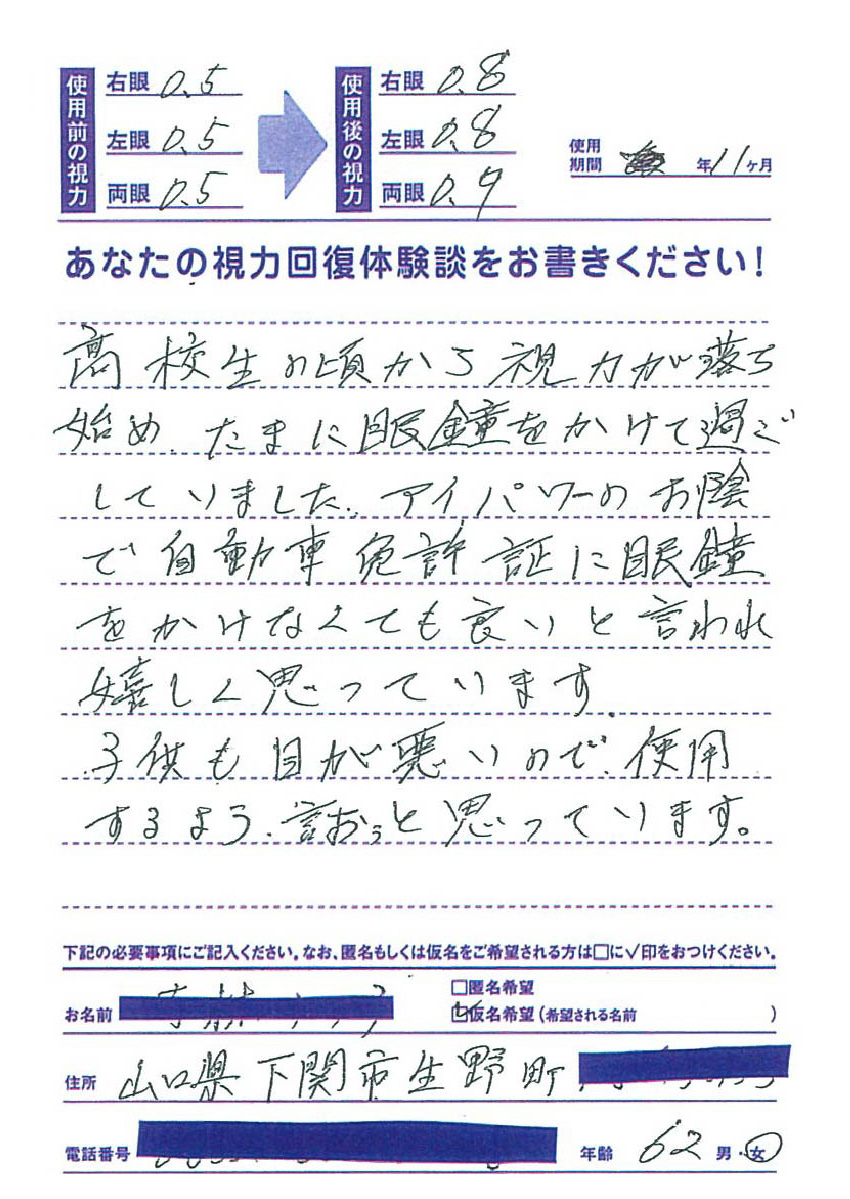 使用前の視力
右眼 0.5
左眼 0.5
両眼 0.5
使用後の視力
右眼 0.8
左眼 0.8
両眼 0.9
使用期間 年11ヶ月
あなたの視力回復体験談をお書きください!
高校生の頃から視力が落ち
始め、たまに眼鐘をかけて過ご
していました。アイパワーのお陰
で自動車免許証に眼鐘
をかけなくても良いと言われ
嬉しく思っています。
子供も目が悪いので、使用
するよう、言おうと思っています。
下記の必要事項にご記入ください。なお、匿名もしくは仮名をご希望される方は□に✓印をおつけください。
お名前
□匿名希望
☑仮名希望(希望される名前 )
住所 山口県下関市生野町
電話番号
年齢 62 男・女